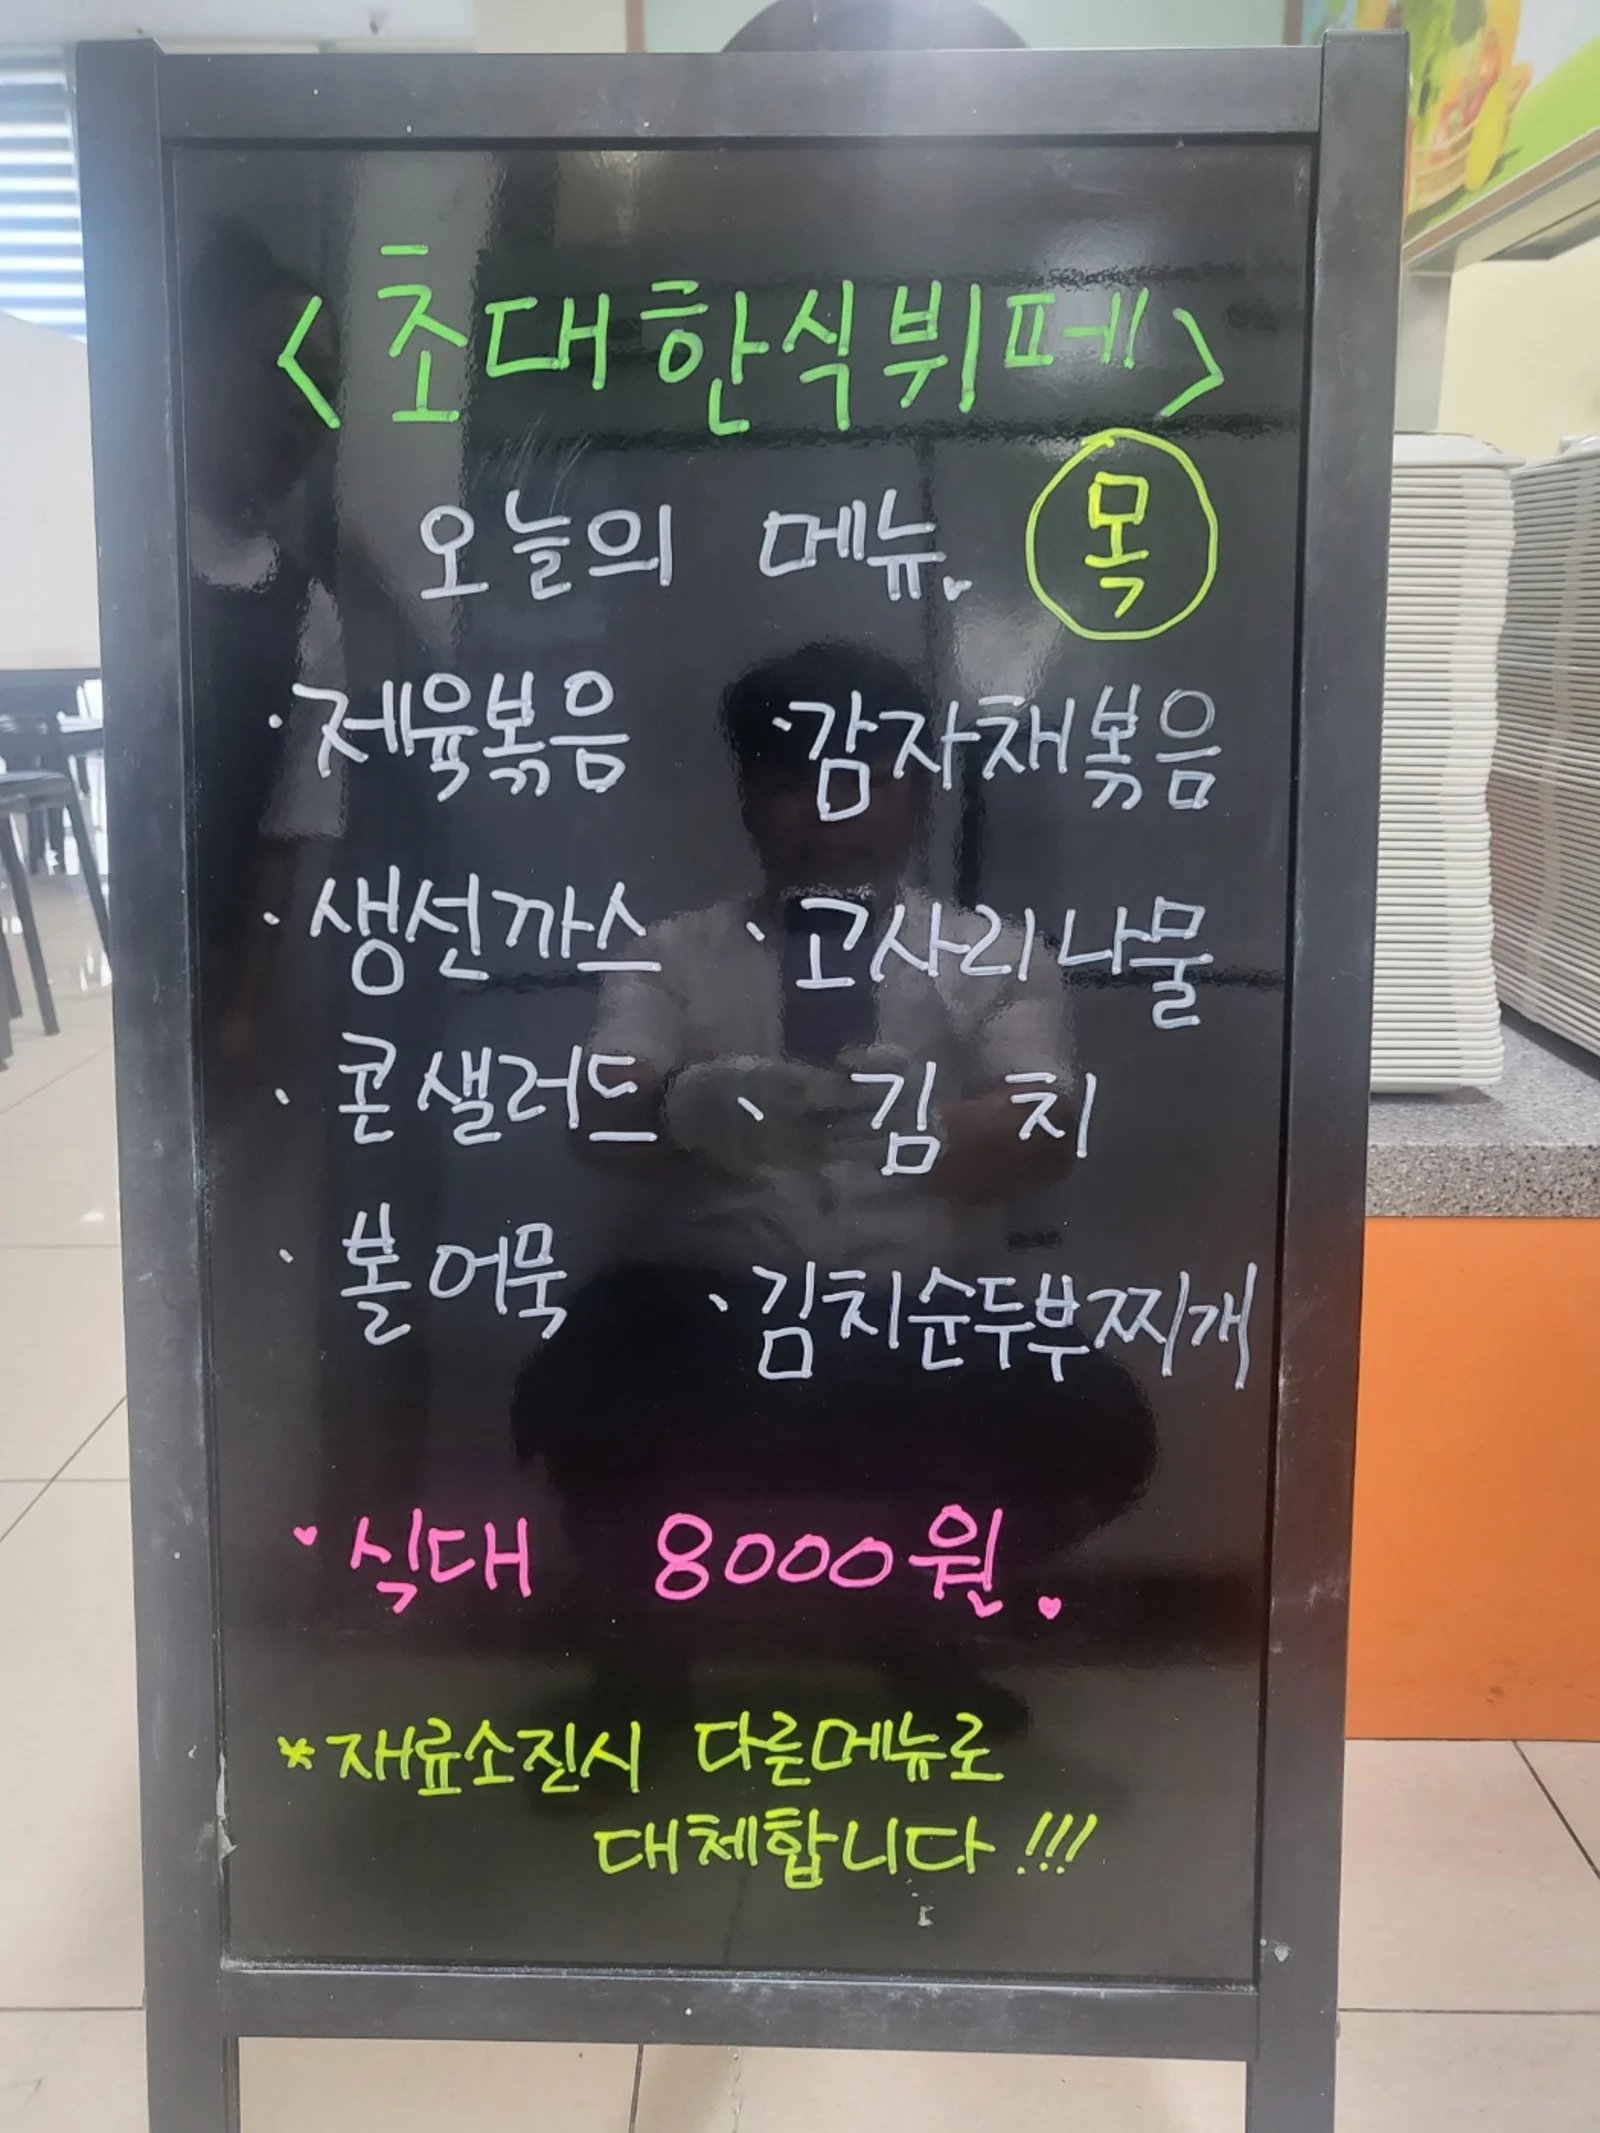 <초대한식뷔페>
오늘의 메뉴. 목
· 제육볶음 · 감자채볶음
· 생선까스 · 고사리나물
· 콘샐러드 · 김치
· 볼어묵 · 김치순두부찌개
♥ 식대 8000원.♥
* 재료소진시 다른메뉴로
대체합니다!!!